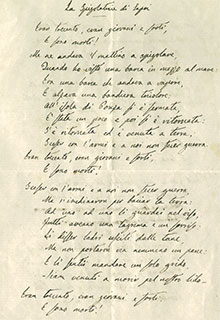 La Spigolatrice di Sapri
Eran trecento, eran giovani e forti,
E sono morti!
Me ne andava il mattino a spigolare,
Quando ho visto una barca in mezzo al mare:
Era una barca che andava a vapore
E alzava una bandiera tricolore
All'isola di Ponza si è fermata,
È stata un poco e poi si è ritornata;
S'è ritornata ed è venuta a terra;
Sceser con l'armi e a noi non fecer guerra.
Eran trecento, eran giovani e forti,
E sono morti!
Sceser con l'armi e a noi non fecer guerra,
Ma s'inchinaron per baciar la terra:
Ad uno ad uno li guardai nel viso,
Tutti avean una lagrima e un sorriso.
Li disser ladri usciti dalle tane,
Ma non portaron via nemmeno un pane;
E li sentii mandare un solo grido:
Siam venuti a morir pel nostro lido.
Eran trecento, eran giovani e forti
E sono morti!